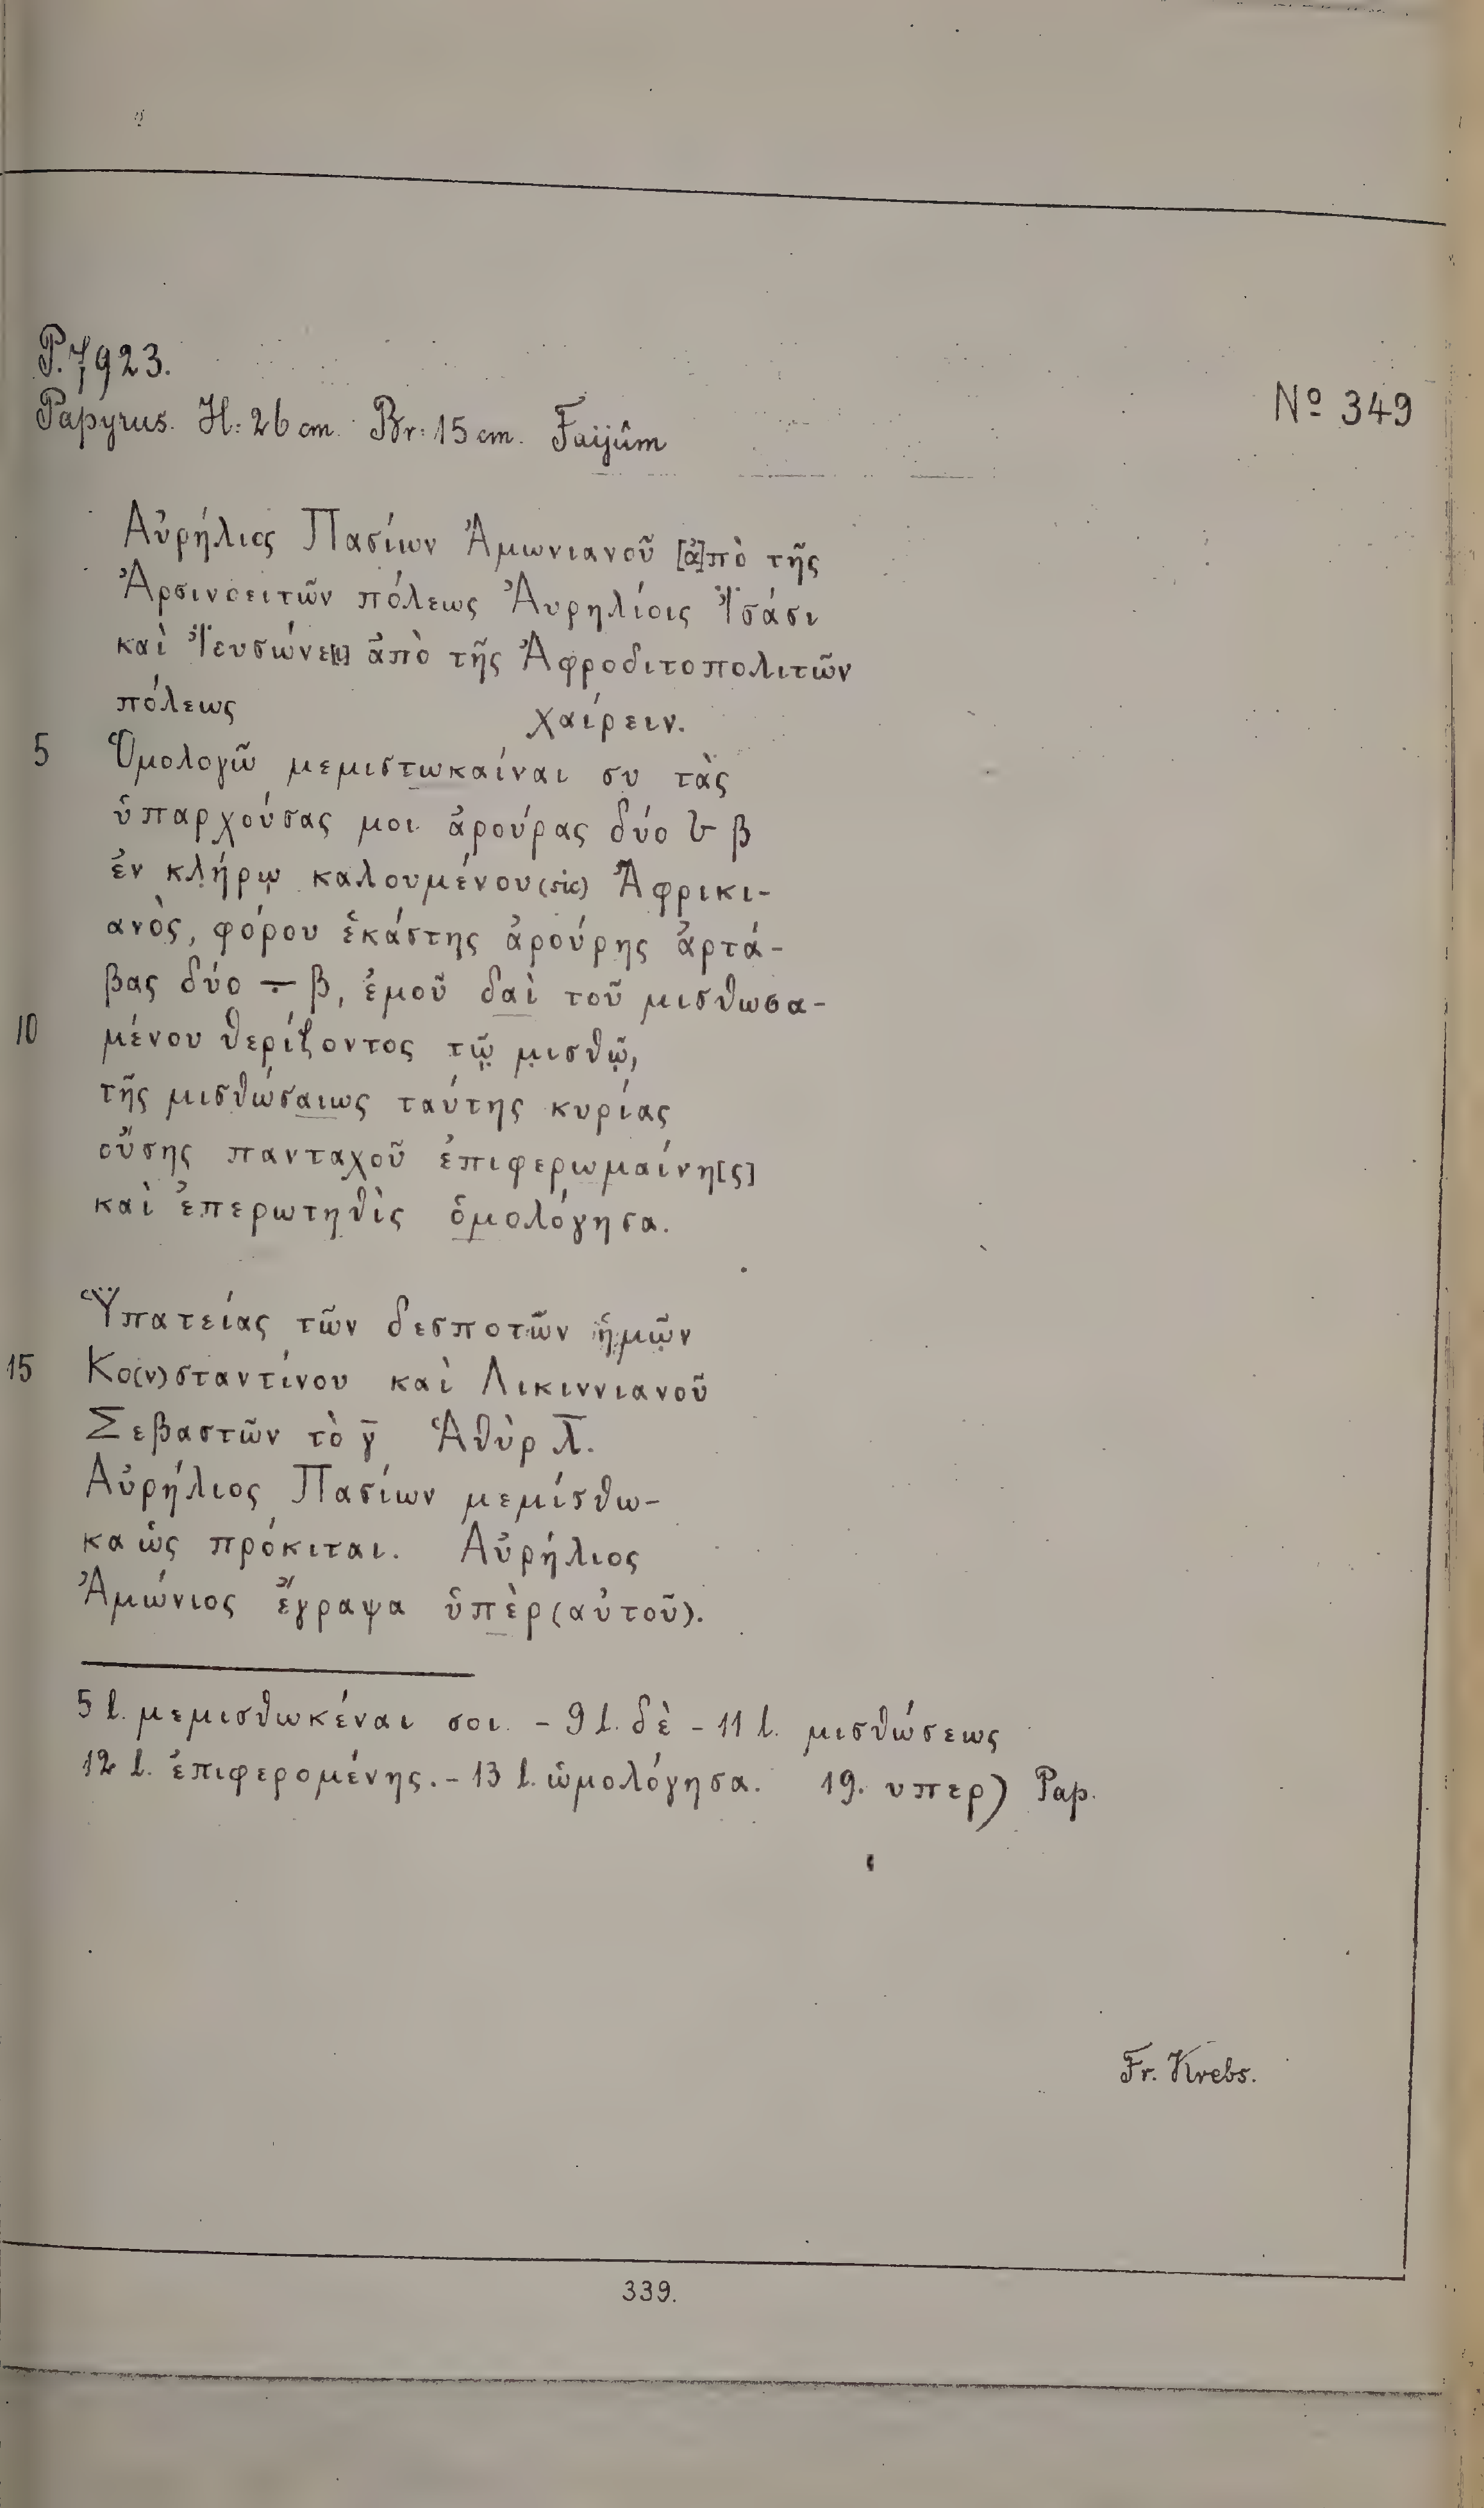 P. 7923.
Papyrus. H: 26 cm. Br: 15 cm. Faijûm
Nº 349
Αὐρήλιος Πασίων Ἀμωνιανοῦ [ἀ]πὸ τῆς
Ἀρσινοειτῶν πόλεως Ἀυρηλίοις Ἰ̈σάσι
καὶ Ἰ̈ευσώνε[ι] ἀπὸ τῆς Ἀφροδιτοπολιτῶν
πόλεως χαίρειν.
5 Ὁμολογῶ μεμιστωκαίναι συ τὰς
ὑπαρχούσας μοι ἀρούρας δύο 𐅵 β
ἐν κλήρῳ καλουμένου (sic) Ἀφρικι-
ανὸς, φόρου ἑκάστης ἀρούρης ἀρτά-
βας δύο ⨪ β, ἐμοῦ δαὶ τοῦ μισθωσα-
10 μένου θερίζοντος τῷ μισθῷ,
τῆς μισθώσαιως ταύτης κυρίας
οὔσης πανταχοῦ ἐπιφερωμαίνη[ς]
καὶ ἐπερωτηθὶς ὁμολόγησα.
Ὑ̈πατείας τῶν δεσποτῶν ἡμῶν
15 Κο(ν)σταντίνου καὶ Λικιννιανοῦ
Σεβαστῶν τὸ γ̅ Ἁθὺρ λ̅.
Αὐρήλιος Πασίων μεμίσθω-
κα ὡς πρόκιται. Αὐρήλιος
Ἀμώνιος ἔγραψα ὑπὲρ (αὐτοῦ).
5 l. μεμισθωκέναι σοι. – 9 l. δὲ – 11 l. μισθώσεως
12 l. ἐπιφερομένης. – 13 l. ὡμολόγησα. 19. υπερ) Pap.
Fr. Krebs.
339.